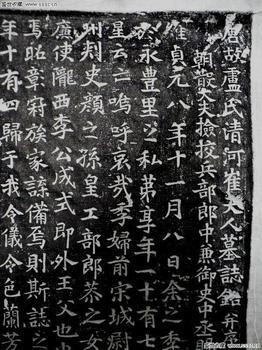 唐故盧氏清河崔夫人墓誌銘并
朝散大夫撿挍兵部郎中兼御史中丞
維貞元八年十一月八日余之季
於永豊里之私苐享年一十有七
星云亡嗚呼哀哉季婦前宋城尉
州刾史顔之孫皇工部郎之女
廣使隴西李公成式即外王父也
焉昭章冠族家諜備焉則斯誌之
年十有四歸于我令儀令色蘭